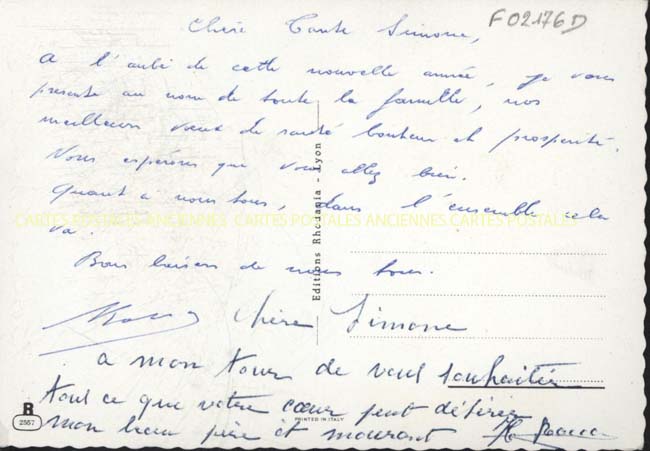 F02176D
Chère Tante Simone,
A l'aube de cette nouvelle année, je vous
présente au nom de toute la famille, nos
meilleurs voeux de santé bonheur et prospérité.
Nous espérons que vous allez bien.
Quant à nous tous, dans l'ensemble cela
va.
Bons baisers de nous tous.
CARTES POSTALES ANCIENNES CARTES POSTALES ANCIENNES CARTES POSTALES
Editions Rhodania - Lyon
chère Simone
a mon tour de vous souhaiter
tout ce que votre cœur peut désirer
mon beau père et mourant
R
2557
PRINTED IN ITALY